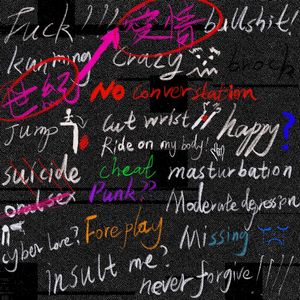 Fuck!!! 爱情 bullshit!
kunming crazy
世纪 No Converstation
Jump Cut wrist happy?
Ride on my body!
suicide cheat masturbation
oral sex Punk?? Moderate depression
cyber love? Foreplay Missing
insult me? never forgive!!!!